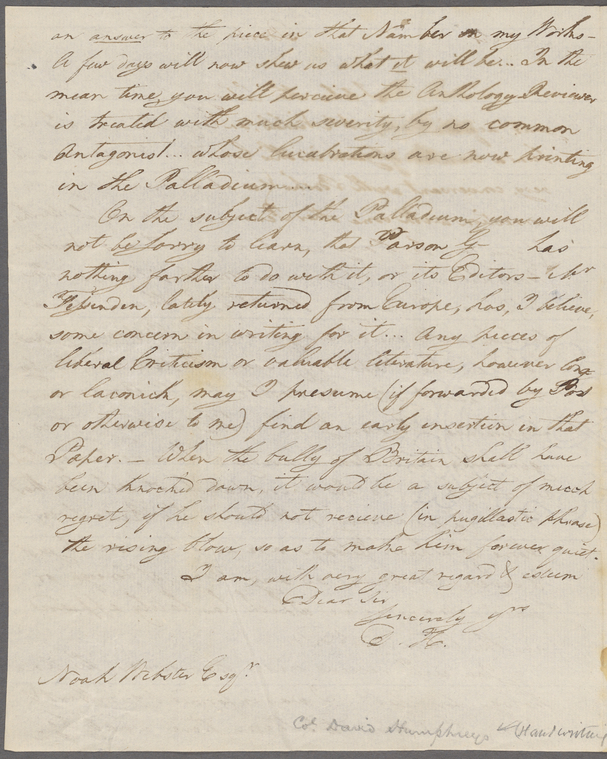 an answer to the piece in that Number on my Works–
A few days will now shew us what it will be... In the
mean time, you will perceive the Anthology Reviewer
is treated with much severity, by no common
Antagonist... whose lucubrations are now printing
in the Palladium....
On the subject of the Palladium, you will
not be sorry to learn, that Parson G– has
nothing farther to do with it, or its Editors– Mr
Fessenden, lately returned from Europe, has, I believe,
some concern in writing for it... Any pieces of
liberal Criticism or valuable literature, however long
or laconick, may I presume (if forwarded by Post
or otherwise to me) find an early insertion in that
Paper. – When the bully of Britain shall have
been knocked down, it would be a subject of much
regret, if he should not recieve (in pugilastic phrase)
the rising blow, so as to make him forever quiet.
I am, with very great regard & esteem
Dear Sir
Sincerely yrs
D. H.
Noah Webster Esqr.
Col. David Humphreys Handwriting